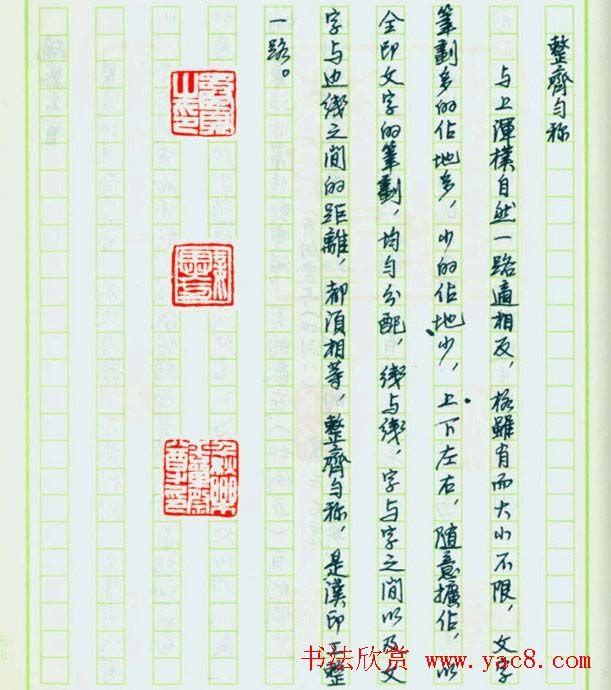 整齊匀称
与上渾樸自然一路適相反，格雖有而大小不限，文字
筆劃多的佔地多，少的佔地少，上下左右，随意擴佔，以
全印文字的筆劃，均匀分配，綫与綫，字与字之間以及文
字与边綫之间的距離，都須相等，整齊匀称，是漢印工整
一路。
书法欣赏 www.yac8.com